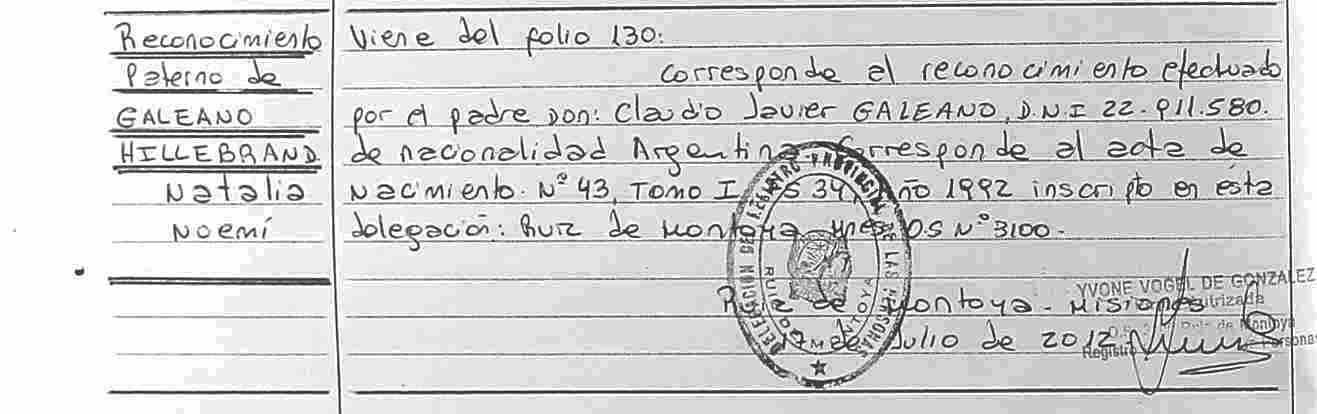 Reconocimiento
Paterno de
GALEANO
HILLEBRAND
Natalia
Noemí
Viene del folio 130:
corresponde al reconocimiento efectuado
por el padre Don: Claudio Javier GALEANO, D.N.I 22.911.580.
de nacionalidad Argentina. Corresponde al acta de
Nacimiento. Nº 43, Tomo I, 34, Año 1992 inscripto en esta
delegación: Ruiz de Montoya Mnes O.S Nº 3100.-
Ruiz de Montoya - Misiones
17 de Julio de 2012.
DELEGACION DEL REGISTRO PROVINCIAL DE LAS PERSONAS
RUIZ DE MONTOYA
YVONE VOGEL DE GONZALEZ
Montoya
Registro Personas